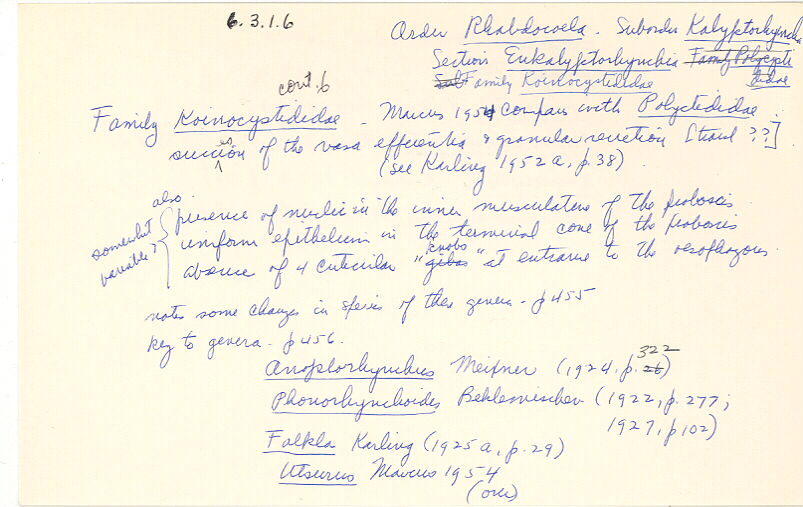 6.3.1.6
Order Rhabdocoela. Suborder Kalyptorhyncha
Section Eukalyptorhynchia Family Polycysti
didae
Sub Family Koinocystididae
cont. 6
Family Koinocystididae - Marcus 1954 compares with Polycystididae
of the vasa efferentia & granular secretion [ ??]
(see Karling 1952a, p. 38)
also
somewhat variable?
presence of nuclei in the inner musculature of the proboscis
uniform epithelium in the terminal cone of the proboscis
knobs
absence of 4 cuticular "gibas" at entrance to the oesophagous
notes some changes in species of these genera - p 455
key to genera - p 456.
322
Anoplorhynchus Meixner (1924, p. 26)
Phonorhynchoides Beklemischev (1922, p. 277;
1927, p 102)
Falkla Karling (1925a, p. 29)
Utsurus Marcus 1954
(over)